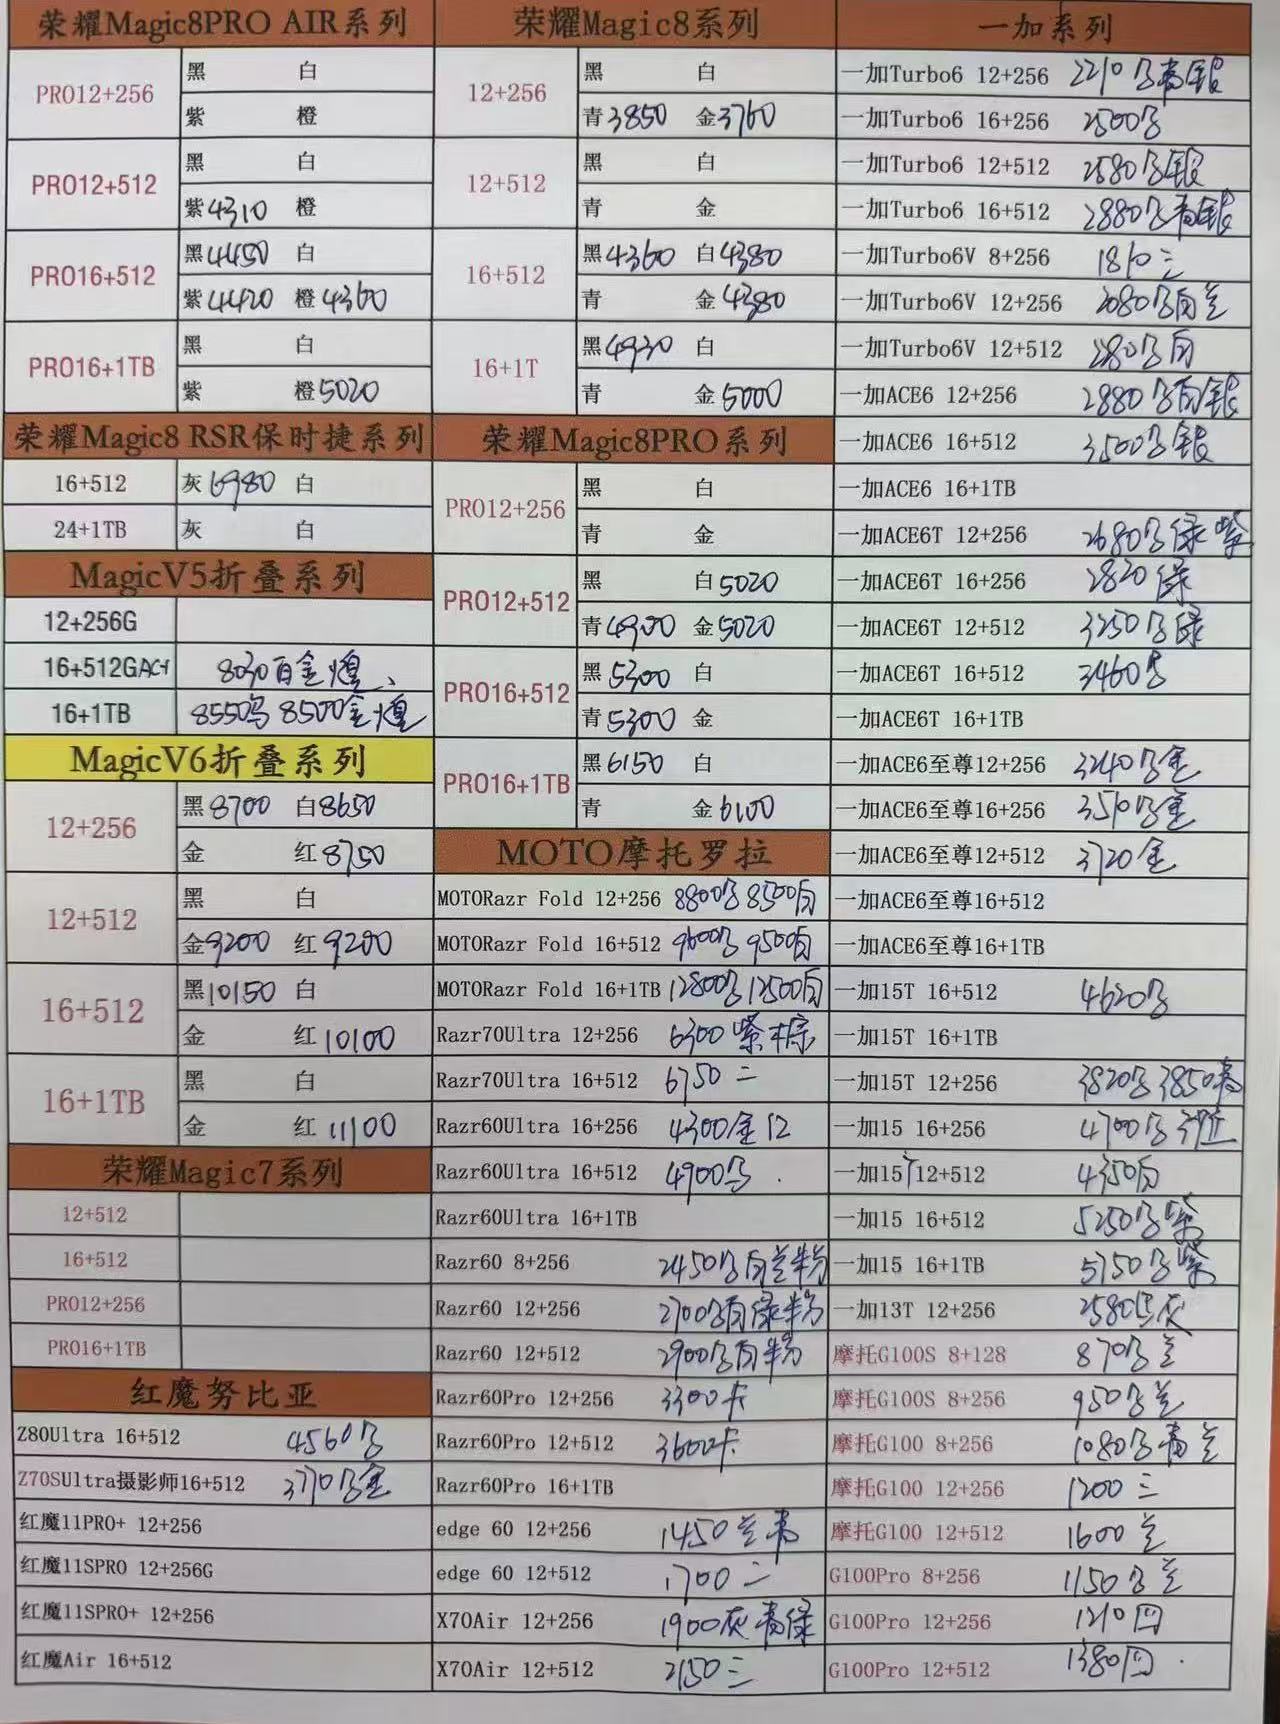 荣耀Magic8PRO AIR系列
PRO12+256
黑 白
紫 橙
PRO12+512
黑 白
紫4310 橙
PRO16+512
黑4450 白
紫4420 橙4360
PRO16+1TB
黑 白
紫 橙5020
荣耀Magic8 RSR保时捷系列
16+512 灰6980 白
24+1TB 灰 白
MagicV5折叠系列
12+256G
16+512G 8030白金煌、
16+1TB 8550 8500金煌
MagicV6折叠系列
12+256
黑8700 白8650
金 红8750
12+512
黑 白
金9200 红9200
16+512
黑10150 白
金 红10100
16+1TB
黑 白
金 红11100
荣耀Magic7系列
12+512
16+512
PRO12+256
PRO16+1TB
红魔努比亚
Z80Ultra 16+512 4560
Z70SUltra摄影师16+512 3770 金
红魔11PRO+ 12+256
红魔11SPRO 12+256G
红魔11SPRO+ 12+256
红魔Air 16+512
荣耀Magic8系列
12+256
黑 白
青3850 金3760
12+512
黑 白
青 金
16+512
黑4360 白4380
青 金4380
16+1T
黑4930 白
青 金5000
荣耀Magic8PRO系列
PRO12+256
黑 白
青 金
PRO12+512
黑 白5020
青4900 金5020
PRO16+512
黑5300 白
青5300 金
PRO16+1TB
黑6150 白
青 金6100
MOTO摩托罗拉
MOTORazr Fold 12+256 8800 8500白
MOTORazr Fold 16+512 9600 9500白
MOTORazr Fold 16+1TB 12800 12500白
Razr70Ultra 12+256 6300紫棕
Razr70Ultra 16+512 6750二
Razr60Ultra 16+256 4300金红
Razr60Ultra 16+512 4900
Razr60Ultra 16+1TB
Razr60 8+256 2450 白兰粉
Razr60 12+256 2700 白绿粉
Razr60 12+512 2900 白粉
Razr60Pro 12+256 3300卡
Razr60Pro 12+512 3600卡
Razr60Pro 16+1TB
edge 60 12+256 1450兰青
edge 60 12+512 1700二
X70Air 12+256 1900灰青绿
X70Air 12+512 2150三
一加系列
一加Turbo6 12+256 2210 青银
一加Turbo6 16+256 2500
一加Turbo6 12+512 2580 银
一加Turbo6 16+512 2880 青银
一加Turbo6V 8+256 1810三
一加Turbo6V 12+256 2080 白兰
一加Turbo6V 12+512 白
一加ACE6 12+256 2880 白银
一加ACE6 16+512 3500 银
一加ACE6 16+1TB
一加ACE6T 12+256 2680 绿紫
一加ACE6T 16+256 2820绿
一加ACE6T 12+512 3250 绿
一加ACE6T 16+512 3460
一加ACE6T 16+1TB
一加ACE6至尊12+256 3240 金
一加ACE6至尊16+256 3510 金
一加ACE6至尊12+512 3720金
一加ACE6至尊16+512
一加ACE6至尊16+1TB
一加15T 16+512 4620
一加15T 16+1TB
一加15T 12+256 3820 3850青
一加15 16+256 4700
一加15T12+512 4350白
一加15 16+512 5250 紫
一加15 16+1TB 5750 紫
一加13T 12+256 2580 灰
摩托G100S 8+128 870 兰
摩托G100S 8+256 950 兰
摩托G100 8+256 1080 青兰
摩托G100 12+256 1200三
摩托G100 12+512 1600兰
G100Pro 8+256 1150 兰
G100Pro 12+256 1210四
G100Pro 12+512 1380四